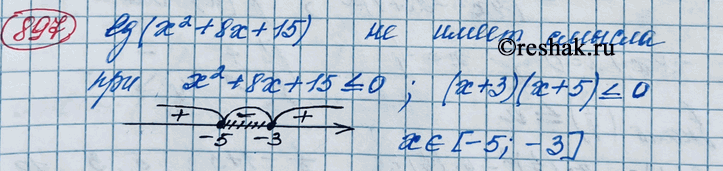 897) lg(x² + 8x + 15) не имеет смысла
©reshak.ru
при x² + 8x + 15 ≤ 0 ; (x+3)(x+5) ≤ 0
+ − +
-5 -3
x ∈ [-5; -3]